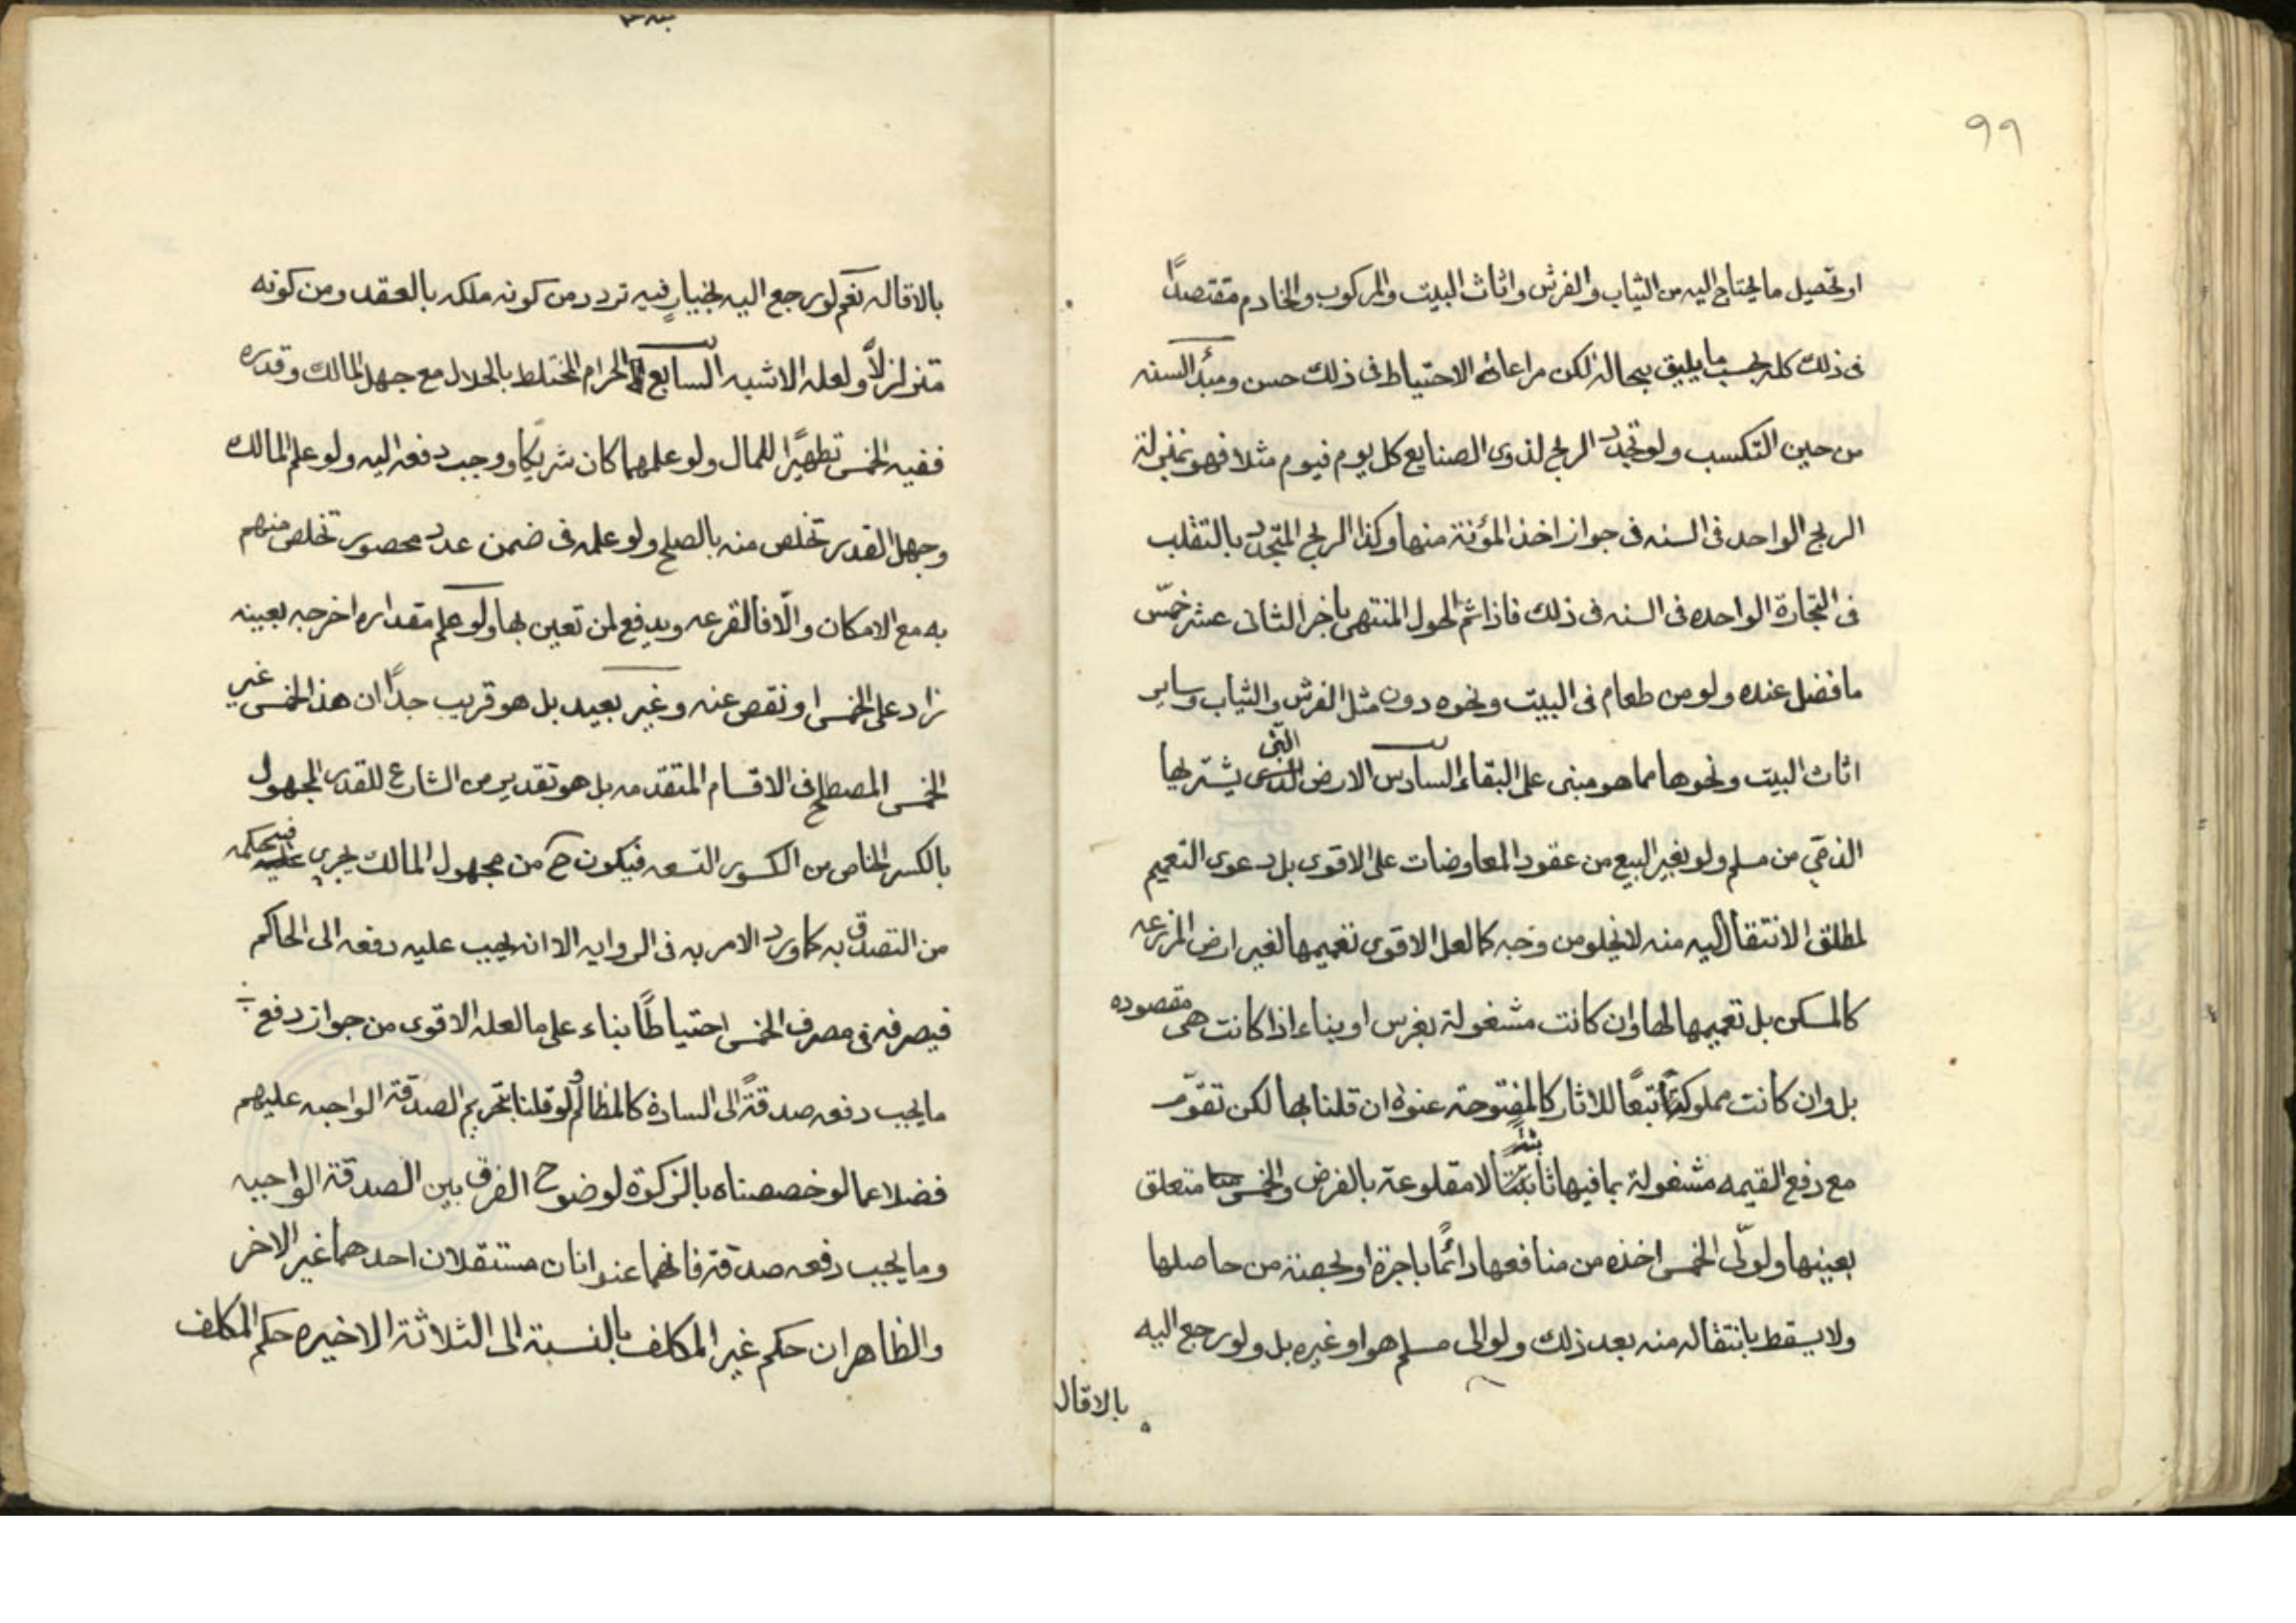 ٩٩
او تحصيل ما يحتاج اليه من الثياب والفرش واثاث البيت والمركوب والخادم مقتصدًا
فى ذلك كله بحسب ما يليق بحاله لكن مراعاة الاحتياط فى ذلك حسن ومبدأ السنه
من حين التكسب ولو تجدد الربح لذوى الصنايع كل يوم فيوم مثلا فهو بمنزلة
الربح الواحد فى السنه فى جواز اخذ المؤنة منها وكذا الربح المتجدد بالتقلب
فى التجارة الواحده فى السنه فى ذلك فاذا تم الحول المنتهى باخر الثانى عشر خمّس
ما فضل عنده ولو من طعام فى البيت ونحوه دون مثل الفرش والثياب وساير
اثاث البيت ونحوها مما هو مبنى على البقاء السادس الارض التى يشتريها
الذمّي من مسلم ولو بغير البيع من عقود المعاوضات على الاقوى بل دعوى التعميم
لمطلق الانتقال اليه منه لا يخلو من وجه كالعل الاقوى تعميمها لغير ارض المزرعه
كالمسكن بل تعميمها لها وان كانت مشغولة بغرس او بناء اذا كانت هى مقصوده
بل وان كانت مملوكة تبعًا للاثار كالمفتوحة عنوة ان قلنا بها لكن تقوّم
مع دفع القيمه مشغولة بما فيها ثابتًا لا مقلوعة بالفرض والخمس متعلق
بعينها ولولّى الخمس اخذه من منافعها دائمًا باجرة او بحصة من حاصلها
ولا يسقط بانتقاله منه بعد ذلك ولو الى مسلم هو او غيره بل ولو رجع اليه
بالاقال
بالاقاله نعم لو رجع اليه بخيار ففيه تردد من كونه ملكه بالعقد ومن كونه
متزلزلًا ولعله الاشبه السابع الحرام المختلط بالحلال مع جهل المالك وقدره
ففيه الخمس تطهيرًا للمال ولو علمهما كان شريكا ووجب دفعه اليه ولو علم المالك
وجهل القدر تخلص منه بالصلح ولو علمه فى ضمن عدد محصور تخلص منهم
به مع الامكان والّا فالقرعه ويدفع لمن تعين بها ولو علم مقداره اخرجه بعينه
زاد على الخمس او نقص عنه وغير بعيد بل هو قريب جدًا ان هذا الخمس غير
الخمس المصطلح فى الاقسام المتقدمه بل هو تقدير من الشارع للقدر المجهول
بالكسر الخاص من الكسور التسعه فيكون ح من مجهول المالك يجرى فيه حكمه
من التصدق به كما ورد الامر به فى الروايه الا انه يجب عليه دفعه الى الحاكم
فيصرفه فى مصرف الخمس احتياطًا بناء على ما لعله الاقوى من جواز دفع
ما يجب دفعه صدقةً الى السادة كالمظالم ولو قلنا بتحريم الصدقة الواجبه عليهم
فضلا عما لو خصصناه بالزكوة لوضوح الفرق بين الصدقة الواجبه
وما يجب دفعه صدقة فانهما عنوانان مستقلان احدهما غير الاخر
والظاهر ان حكم غير المكلف بالنسبة الى الثلاثة الاخيره حكم المكلف